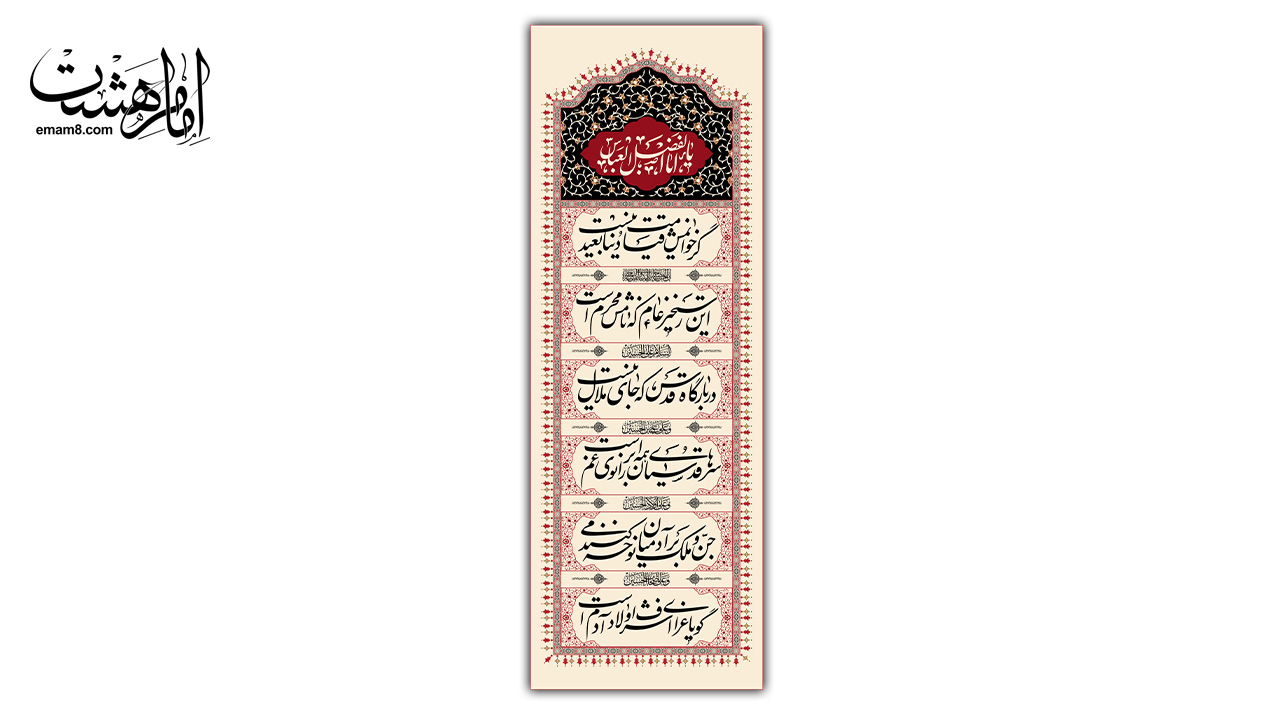 امام هشت
emam8.com
یا اباالفضل العباس
گر خوانمش قیامت دنیا بعید نیست
این رستخیز عام که نامش محرم است
السلام علی الحسین
در بارگاه قدس که جای ملال نیست
و علی علی بن الحسین
سرهای قدسیان همه بر زانوی غم است
و علی اولاد الحسین
جن و ملک بر آدمیان نوحه می‌کنند
و علی اصحاب الحسین
گویا عزای اشرف اولاد آدم است